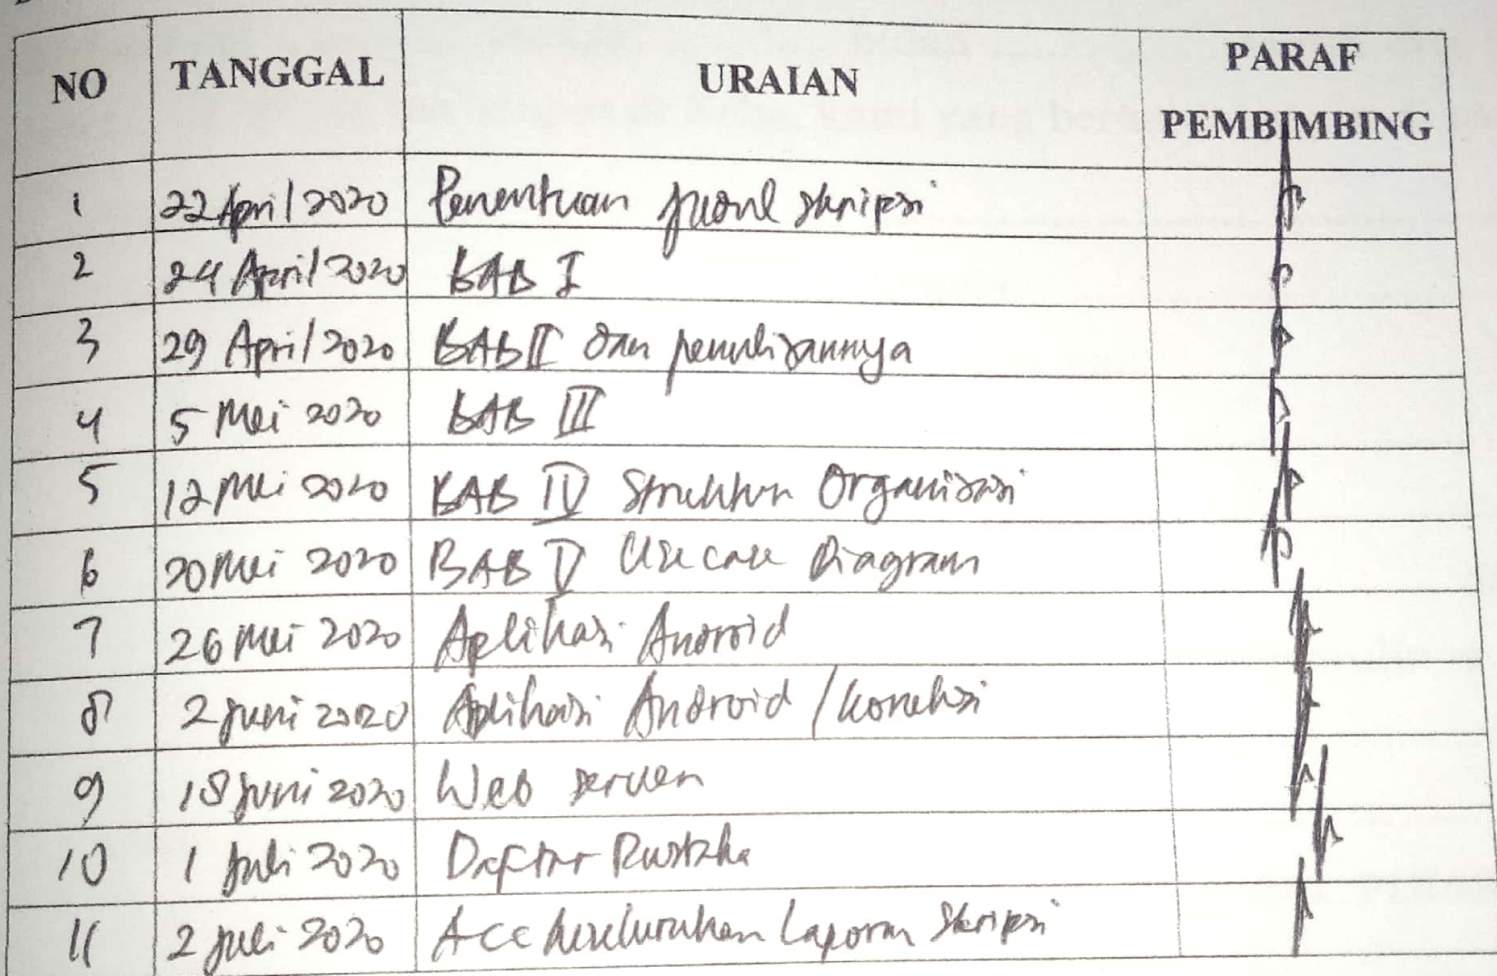 NO TANGGAL URAIAN PARAF PEMBIMBING
1 22 April 2020 Penentuan judul skripsi
2 24 April 2020 BAB I
3 29 April 2020 BAB II dan penulisannya
4 5 Mei 2020 BAB III
5 12 Mei 2020 BAB IV Struktur Organisasi
6 20 Mei 2020 BAB V Use case Diagram
7 26 Mei 2020 Aplikasi Android
8 2 Juni 2020 Aplikasi Android / koneksi
9 18 Juni 2020 Web server
10 1 Juli 2020 Daftar Pustaka
11 2 Juli 2020 Acc keseluruhan Laporan Skripsi